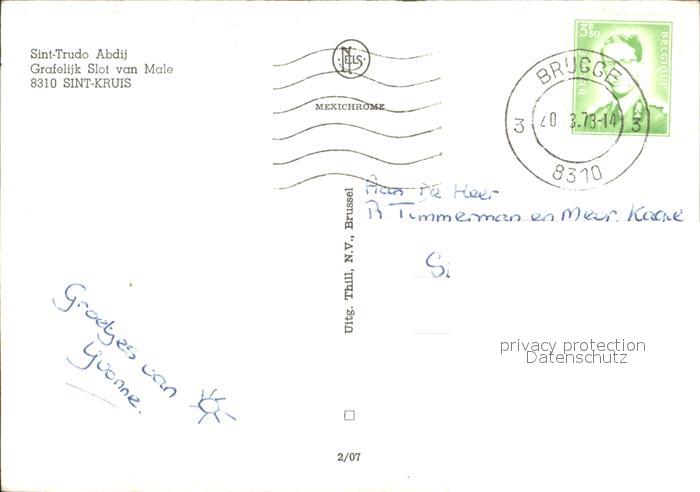 Sint-Trudo Abdij
Grafelijk Slot van Male
8310 SINT-KRUIS
NELS
MEXICHROME
3F50
BELGIQUE
BRUGGE
3 20 3.73-14 3
8310
Aan De Heer
R. Timmerman en Mevr.
Si
Uitg. Thill, N.V., Brussel
Groetjes van
Yvonne.
privacy protection
Datenschutz
2/07